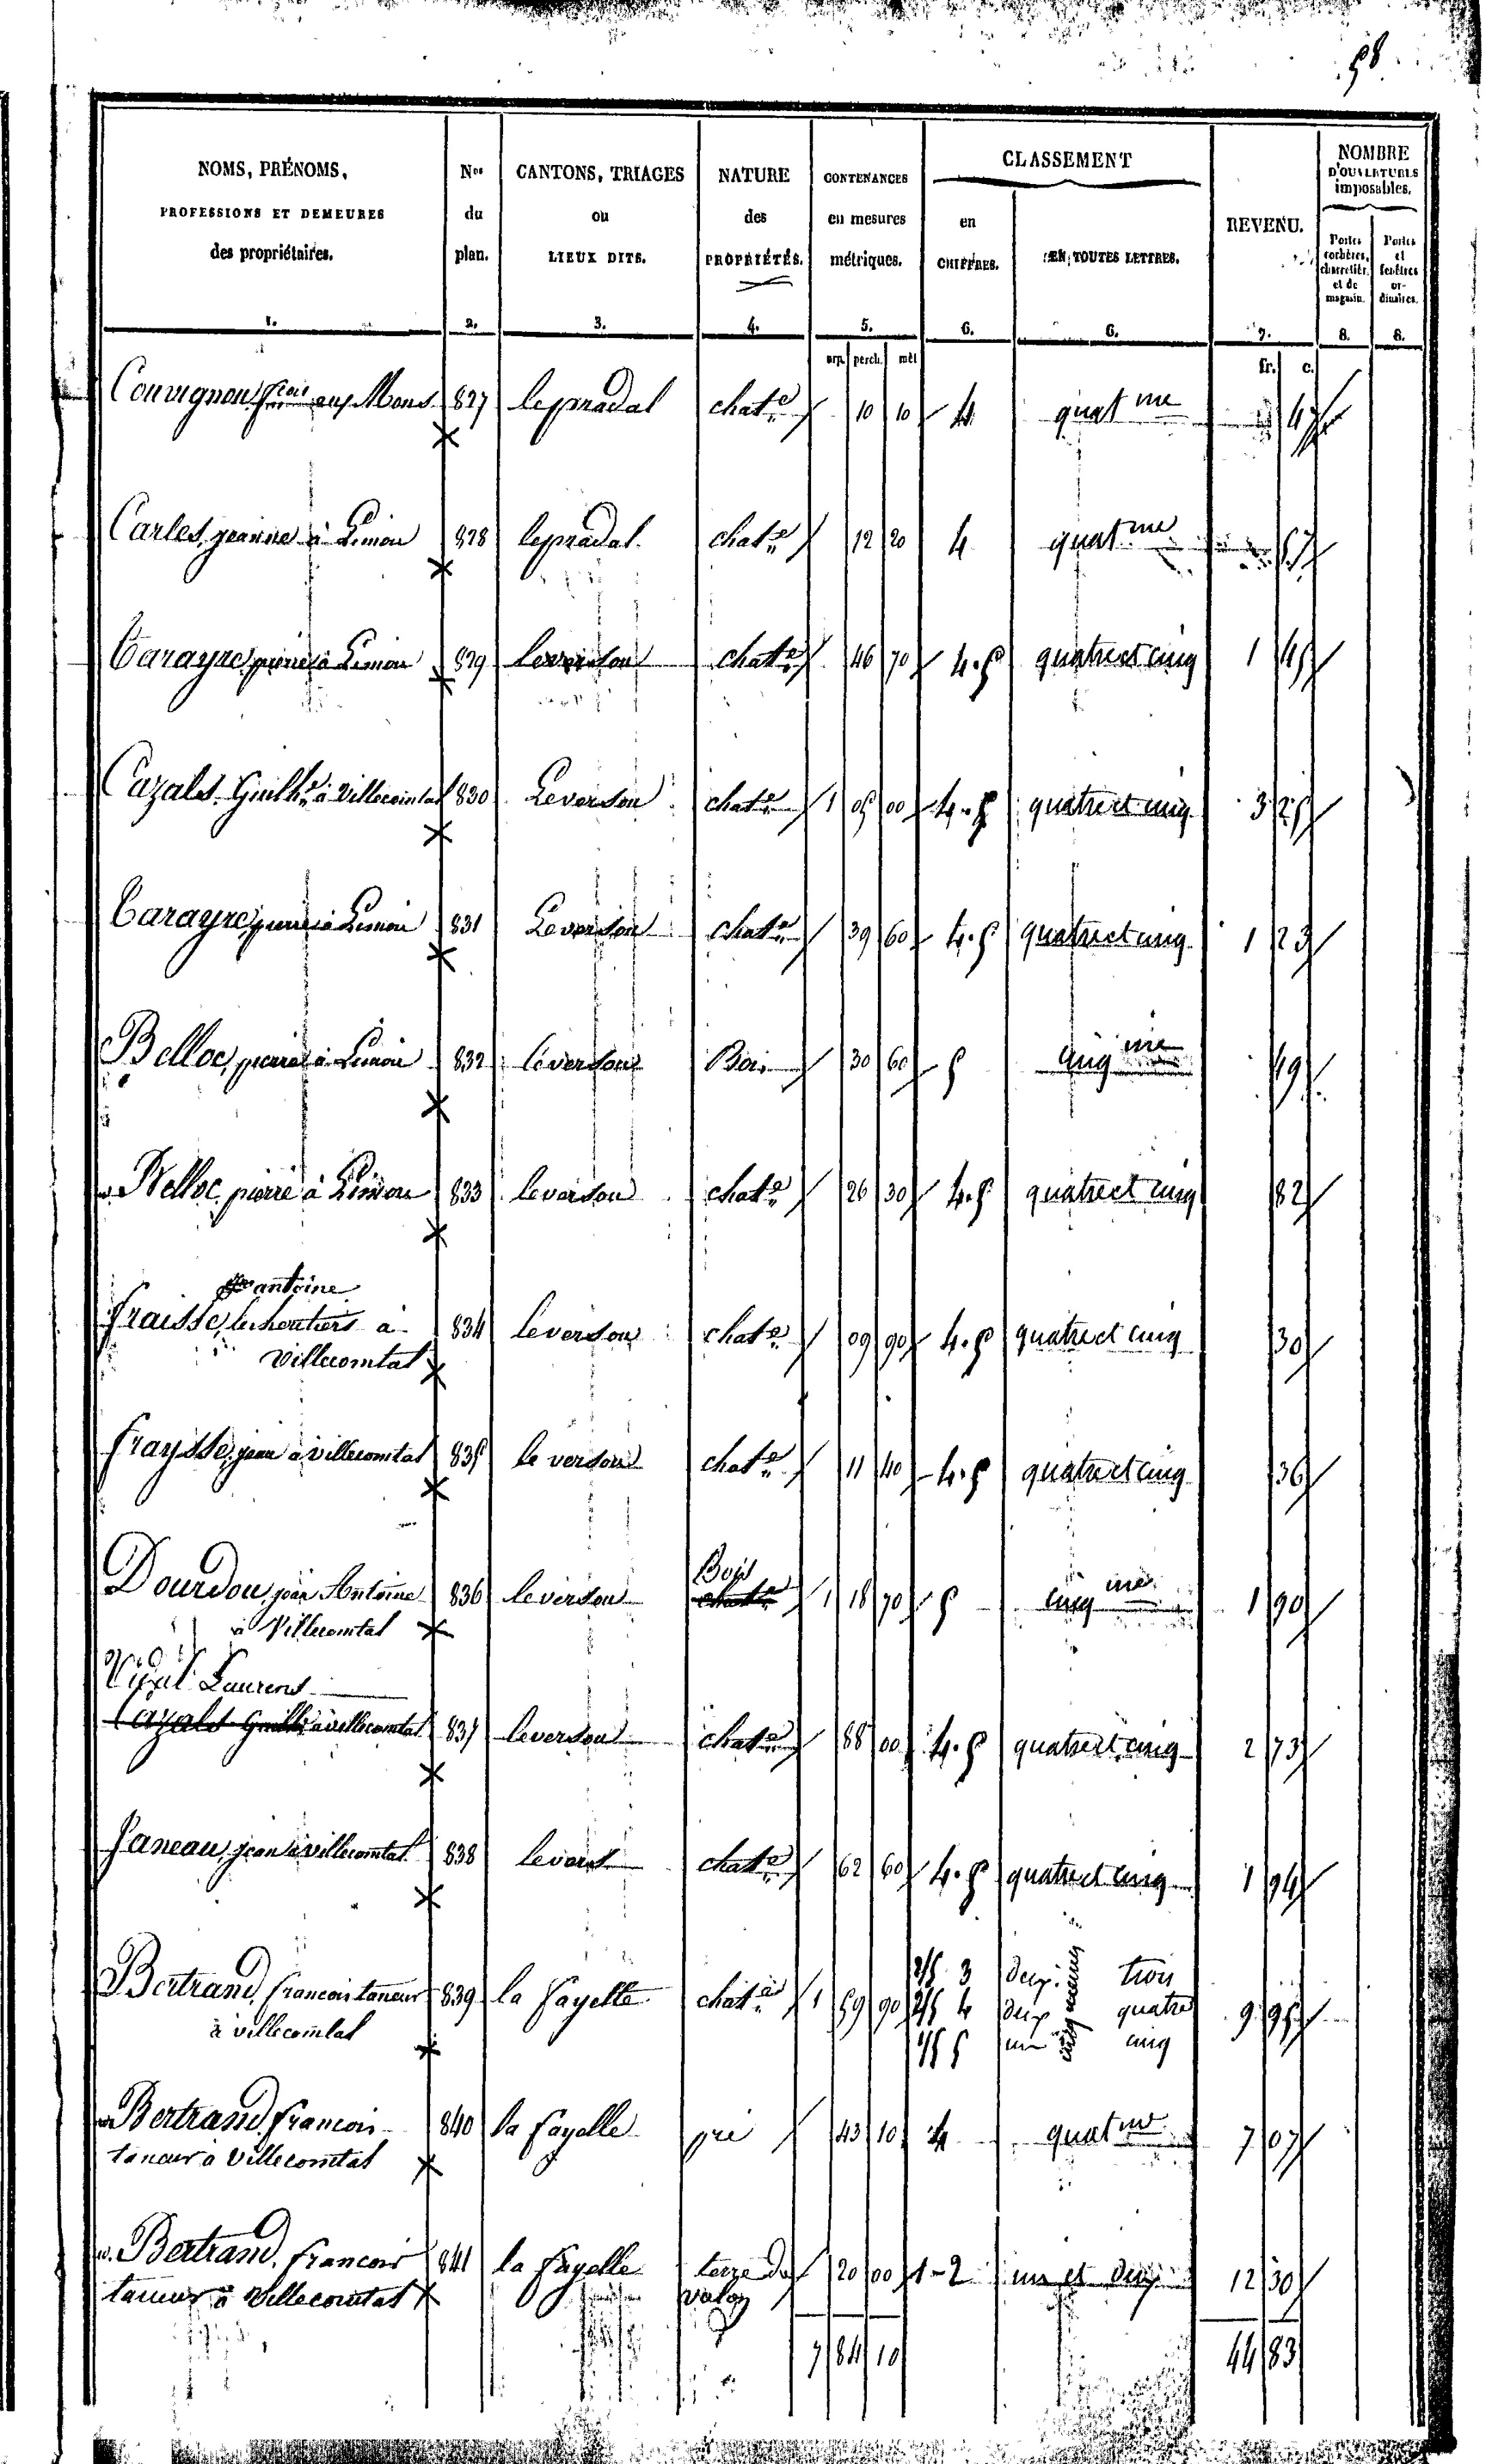 58
NOMS, PRÉNOMS, PROFESSIONS ET DEMEURES des propriétaires. 1.
Nos du plan. 2.
CANTONS, TRIAGES ou LIEUX DITS. 3.
NATURE des PROPRIÉTÉS. 4.
CONTENANCES en mesures métriques. 5.
CLASSEMENT
en CHIFFRES. 6.
EN TOUTES LETTRES. 6.
REVENU. 7.
NOMBRE D'OUVERTURES imposables.
Portes cochères, charretièr. et de magasin. 8.
Portes et fenêtres ordinaires. 8.
arp. perch. mèt fr. c.
Couvignou 827 le pradal chat.e 10 10 4 quatme 47
Carles, jeanne à Limon 828 le pradal chat.e 12 20 4 quatme 57
Carayre, pierre à Limon 829 le verson chat.e 46 70 4.5 quatre et cinq 1 45
Cazalet Guilhe à Villecomtal 830 Le verson chat.e 1 05 00 4.5 quatre et cinq 3 25
Carayre, pierre à Limon 831 Le verson chat.e 39 60 4.5 quatre et cinq 1 23
Belloc, pierre à Limon 832 le verson Bois 30 60 5 cinqme 49
Belloc, pierre à Limon 833 le verson chat.e 26 30 4.5 quatre et cinq 82
antoine
fraisse, les heritiers à 834 le verson chat.e 09 90 4.5 quatre et cinq 30
Villecomtal
fraysse, jean à villecomtal 835 le verson chat.e 11 40 4.5 quatre et cinq 36
Bois
Dourdou, jean Antoine 836 le verson chat.e 1 18 70 5 cinqme 1 90
à Villecomtal
Vidal Laurens
Cazalet Guilhe à villecomtal 837 le verson chat.e 88 00 4.5 quatre et cinq 2 73
janeau, jean à villecomtal 838 chat.e 62 60 4.5 quatre et cinq 1 94
2/5 3 deux trois
Bertrand, francois taneur 839 la fayelle chat.e 1 59 90 2/5 4 deux cinquiemes quatre 9 95
à villecomtal 1/5 5 un cinq
Bertrand, francois 840 la fayelle pré 43 10 4 quatme 7 07
taneur à Villecomtal
Bertrand, francois 841 la fayelle terre de 20 00 1-2 un et deux 12 30
taneur à Villecomtal
7 84 10 44 83